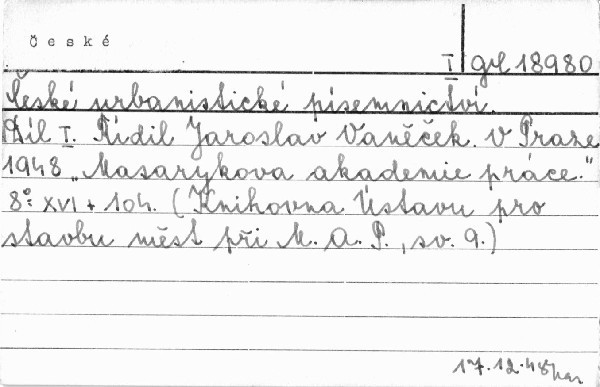 České
I gd 18980
České urbanistické písemnictví.
Díl I. Řídil Jaroslav Vaněček. V Praze
1948 „Masarykova akademie práce."
8°: XVI + 104. (Knihovna Ústavu pro
stavbu měst při M. A. P., sv. 9.)
17.12.48